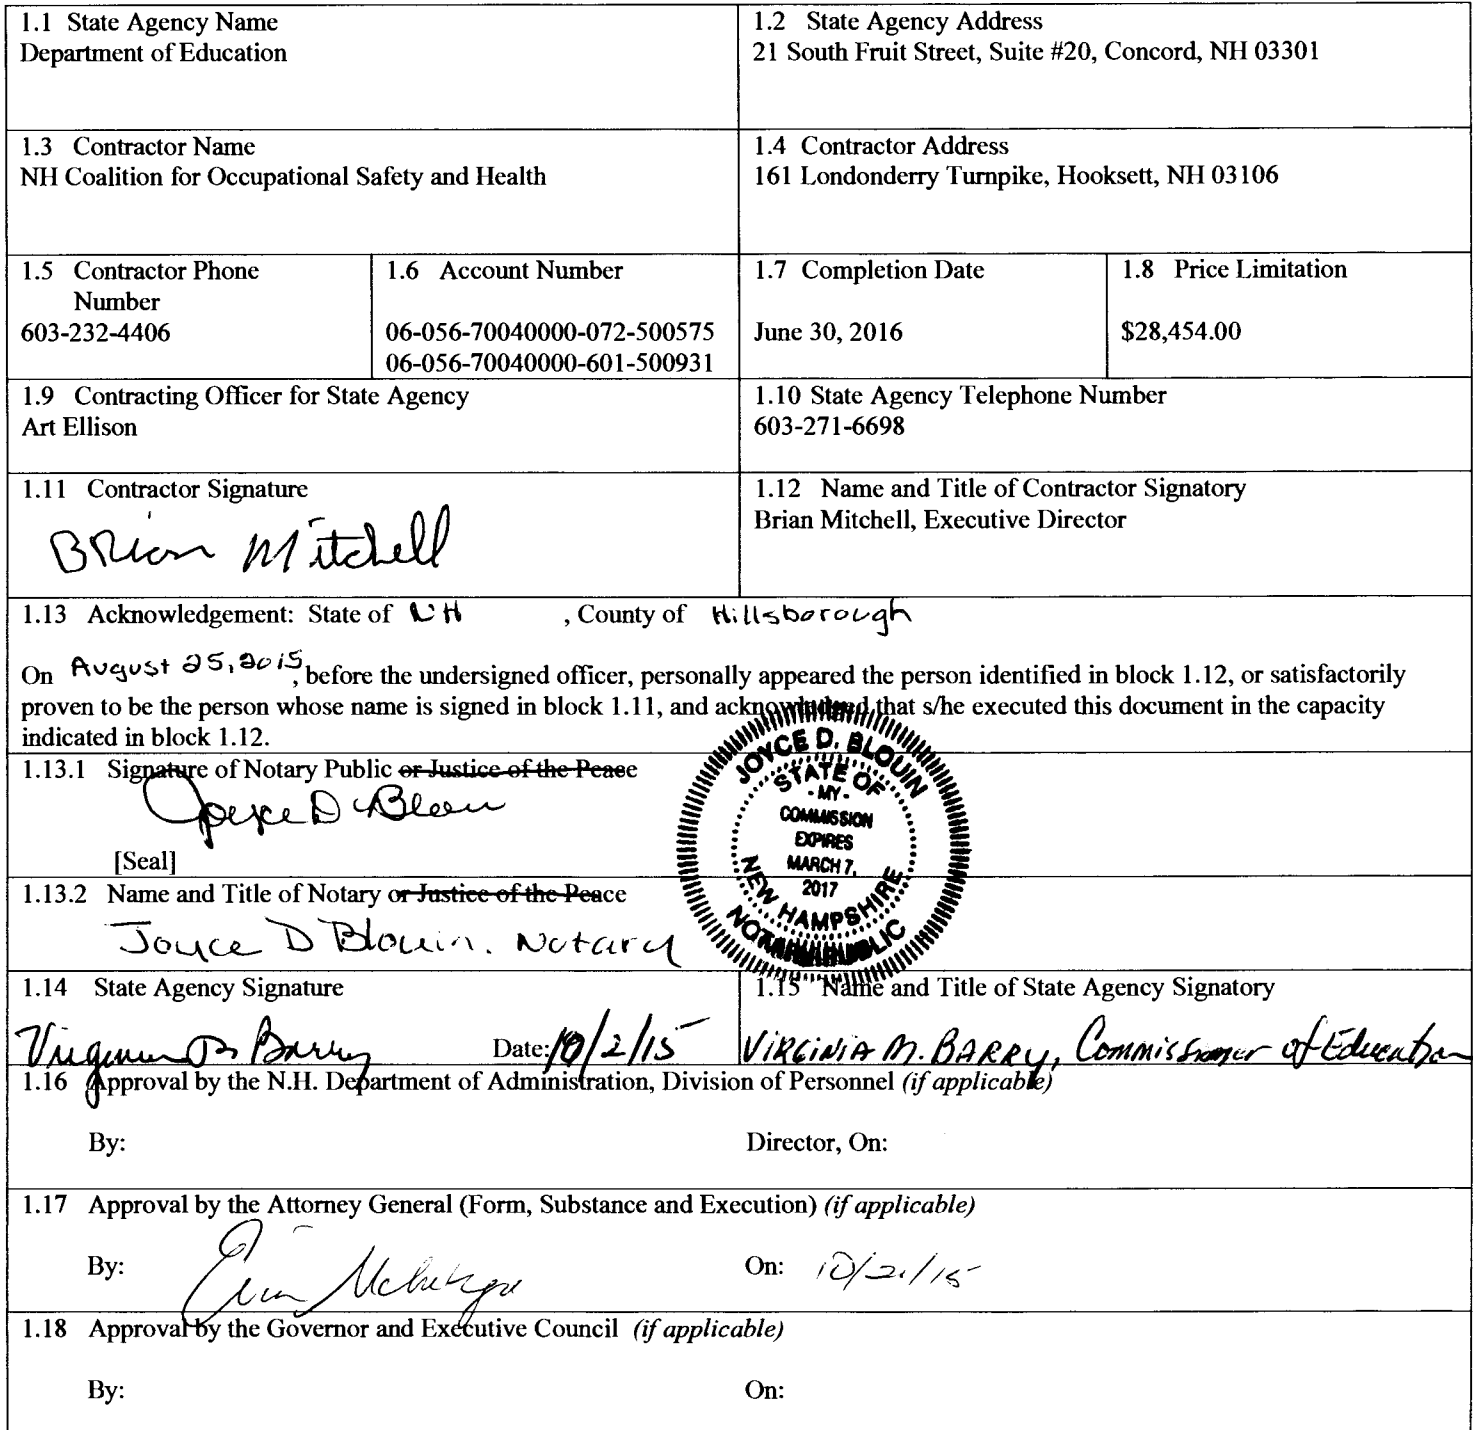 1.1 State Agency Name
Department of Education
1.2 State Agency Address
21 South Fruit Street, Suite #20, Concord, NH 03301
1.3 Contractor Name
NH Coalition for Occupational Safety and Health
1.4 Contractor Address
161 Londonderry Turnpike, Hooksett, NH 03106
1.5 Contractor Phone
Number
603-232-4406
1.6 Account Number
06-056-70040000-072-500575
06-056-70040000-601-500931
1.7 Completion Date
June 30, 2016
1.8 Price Limitation
$28,454.00
1.9 Contracting Officer for State Agency
Art Ellison
1.10 State Agency Telephone Number
603-271-6698
1.11 Contractor Signature
Brian Mitchell
1.12 Name and Title of Contractor Signatory
Brian Mitchell, Executive Director
1.13 Acknowledgement: State of NH , County of Hillsborough
On August 25, 2015, before the undersigned officer, personally appeared the person identified in block 1.12, or satisfactorily
proven to be the person whose name is signed in block 1.11, and acknowledged that s/he executed this document in the capacity
indicated in block 1.12.
1.13.1 Signature of Notary Public or Justice of the Peace
Joyce D Blouin
[Seal]
JOYCE D. BLOUIN
STATE OF
- MY -
COMMISSION
EXPIRES
MARCH 7,
2017
NEW HAMPSHIRE
NOTARY PUBLIC
1.13.2 Name and Title of Notary or Justice of the Peace
Joyce D Blouin, Notary
1.14 State Agency Signature
Virginia M Barry Date: 10/2/15
1.15 Name and Title of State Agency Signatory
VIRGINIA M. BARRY, Commissioner of Education
1.16 Approval by the N.H. Department of Administration, Division of Personnel (if applicable)
By: Director, On:
1.17 Approval by the Attorney General (Form, Substance and Execution) (if applicable)
By: On: 10/21/15
1.18 Approval by the Governor and Executive Council (if applicable)
By: On: